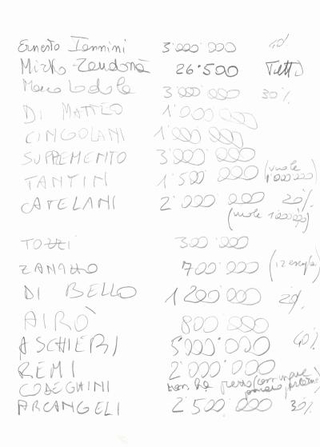 Ernesto Iannini 3'000'000
Mirko Zandonà 26'500 Tutti
Marco Lodola 3'000'000 30%
DI MATTEO 1'000'000
CINGOLANI 1'000'000
SUPPREMENTO 3'000'000
TANTIN 1'500'000 (vuole 1'000'000)
CATELANI 2'000'000 20%
(vuole 1'000'000)
TOZZI 300'000
ZANAZZO 700'000
DI BELLO 1'200'000 20%
AIRÒ 800'000
ASCHIERI 5'000'000 40%
REMI 2'000'000
CODEGHINI non ha
ARCANGELI 2'500'000 30%